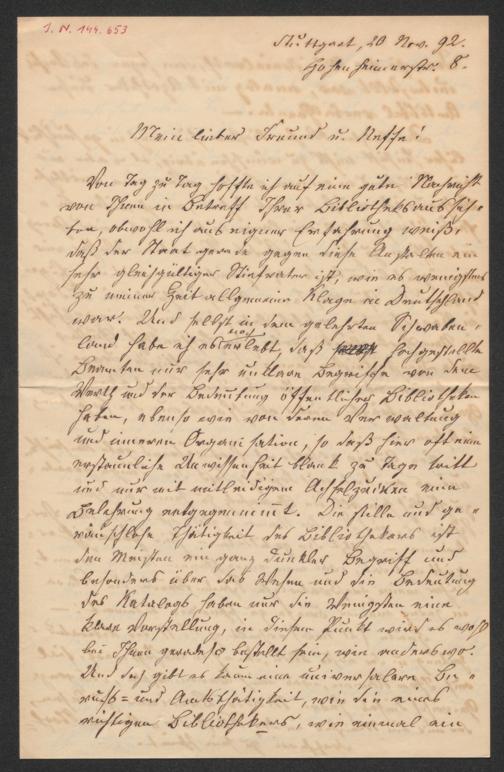 J. N. 144.653
Stuttgart, 20 Nov. 92.
Hohenheimerstr. 8.
Mein lieber Freund u. Neffe!
Von Tag zu Tag hoffte ich auf eine gute Nachricht
von Ihnen in Betreff Ihrer Bibliotheksaussich-
ten, obwohl ich aus eigner Erfahrung weiß,
daß der Staat gerade gegen diese Anstalten ein
sehr gleichgültiger Stiefvater ist, wie es wenigstens
zu meiner Zeit allgemeine Klage in Deutschland
war. Und selbst in dem gelehrten Schwaben-
land habe ich es erlebt, daß hochgestellte
Beamten nur sehr unklare Begriffe von dem
Werth und der Bedeutung öffentlicher Bibliotheken
haben, ebenso wie von deren Verwaltung
und inneren Organisation, so daß hier oft eine
erstaunliche Unwissenheit blank zu Tage tritt
und nur mit mitleidigem Achselzucken eine
Belehrung entgegennimmt. Die stille und ge-
räuschlose Thätigkeit des Bibliothekars ist
den Meisten ein ganz dunkler Begriff und
besonders über das Wesen und die Bedeutung
des Katalogs haben nur die Wenigsten eine
klare Vorstellung, in diesem Punkt wird es wohl
bei Ihnen geradeso bestellt sein, wie anderswo.
Und doch gibt es kaum eine universalere Be-
rufs- und Amtsthätigkeit, wie die eines
richtigen Bibliothekars, wie einmal ein